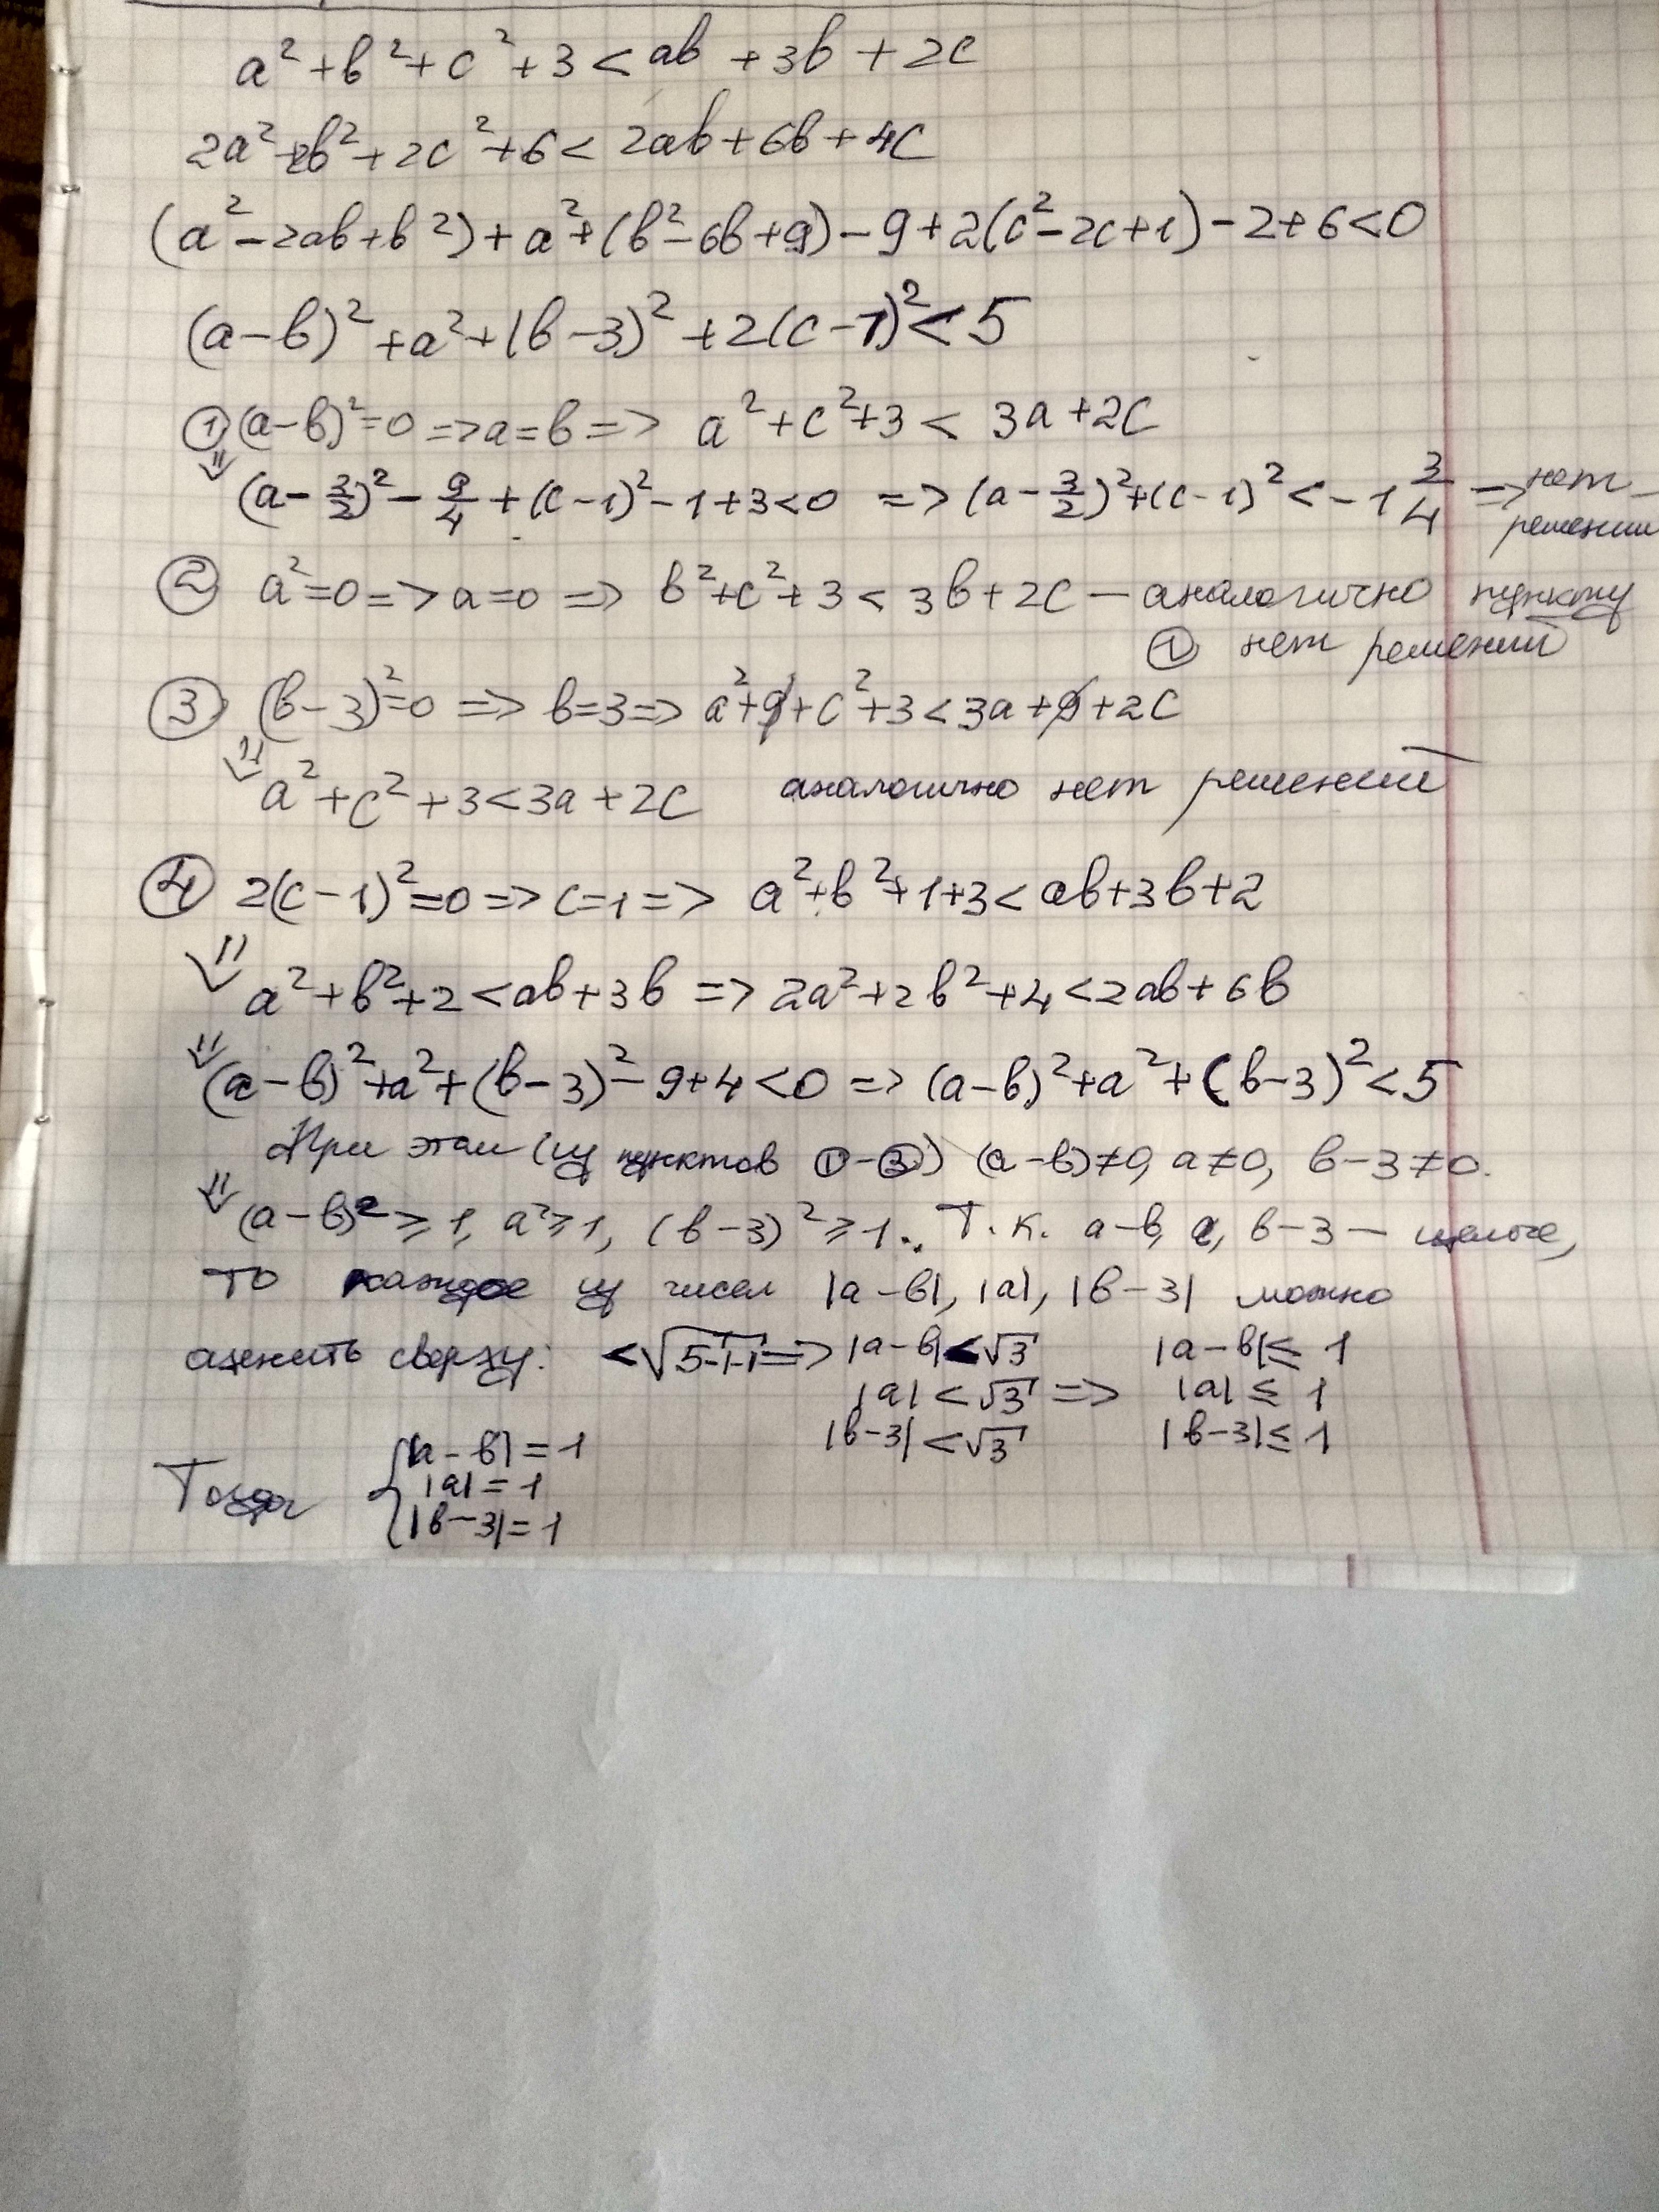 a²+b²+c²+3<ab+3b+2c
2a²+2b²+2c²+6<2ab+6b+4c
(a²-2ab+b²)+a²+(b²-6b+9)-9+2(c²-2c+1)-2+6<0
(a-b)²+a²+(b-3)²+2(c-1)²<5
① (a-b)²=0=>a=b=> a²+c²+3<3a+2c
⇓ (a-3/2)²-9/4+(c-1)²-1+3<0 => (a-3/2)²+(c-1)²<-1 3/4 => нет
решений
② a²=0=>a=0=> b²+c²+3<3b+2c — аналогично пункту
① нет решений
③ (b-3)²=0 => b=3=> a²+9+c²+3<3a+9+2c
⇓ a²+c²+3<3a+2c аналогично нет решений
④ 2(c-1)²=0=>c=1=> a²+b²+1+3<ab+3b+2
⇓ a²+b²+2<ab+3b => 2a²+2b²+4<2ab+6b
⇓ (a-b)²+a²+(b-3)²-9+4<0 => (a-b)²+a²+(b-3)²<5
При этом (из пунктов ①-③) (a-b)≠0, a≠0, b-3≠0.
⇓ (a-b)²≥1, a²≥1, (b-3)²≥1. Т.к. a-b, a, b-3 — целые,
то каждое из чисел |a-b|, |a|, |b-3| можно
оценить сверху: <√5-1-1 => |a-b|<√3 |a-b|≤1
|a|<√3 => |a|≤1
|b-3|<√3 |b-3|≤1
Тогда { |a-b|=1
|a|=1
|b-3|=1